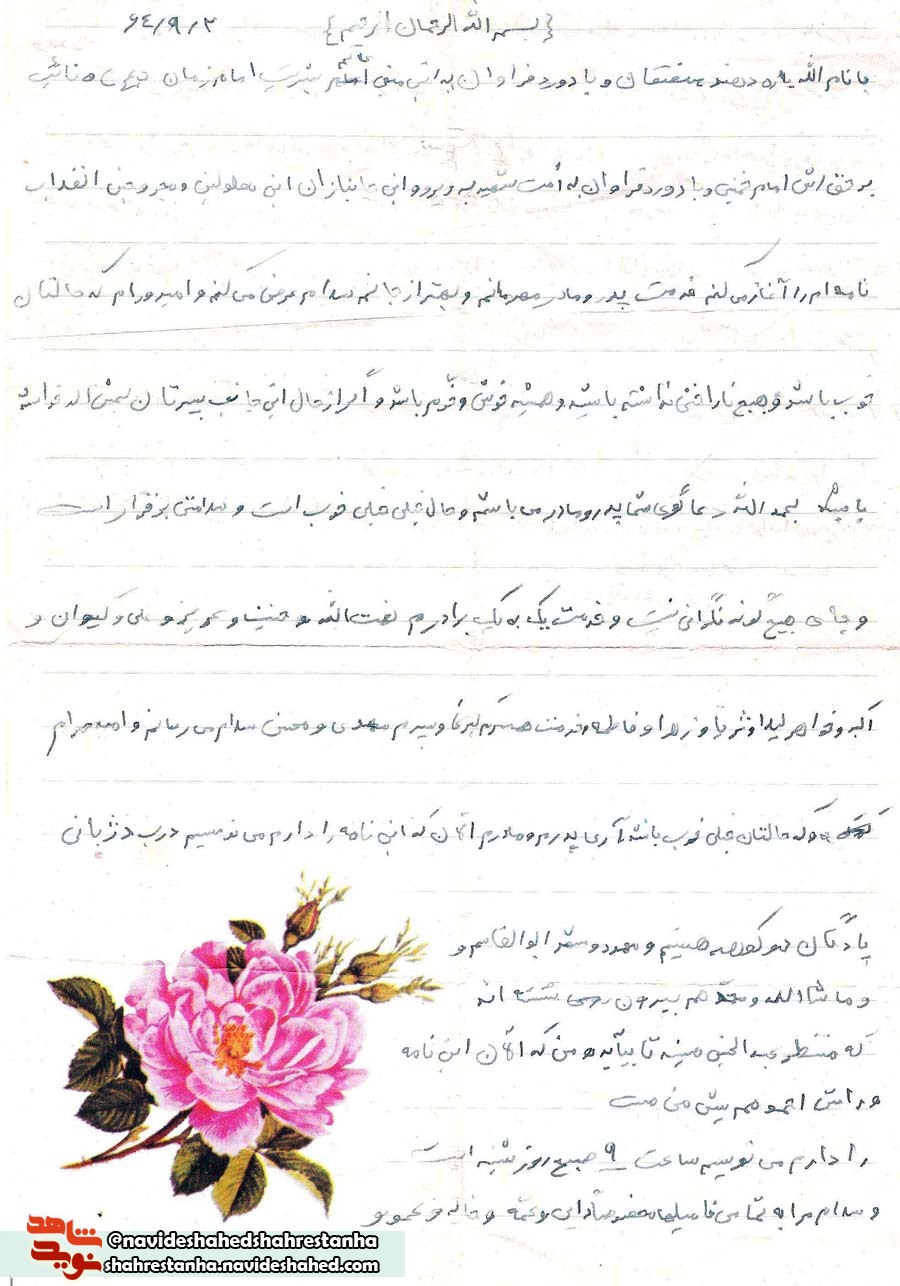 ۶۴/۹/۲ {بسم الله الرحمان الرحیم}
با نام الله یاری دهنده متقیان و با درود فراوان به منجی عالم بشریت امام زمان (عج) و نائب
بر حق اش امام خمینی و با درود فراوان به امت شهید پرور و این جانبازان این معلولین و مجروحین انقلاب
نامه ام را آغاز می کنم خدمت پدر و مادر مهربانم و بهتر از جانم سلام عرض می کنم و امیدورام که حالتان
خوب باشد و هیچ ناراحتی نداشته باشید و همیشه خوش و خرم باشد و اگر از حال این جانب پسرتان خواسته
باشید بحمدالله دعا گوی شما پدر و مادر می باشم و حال خیلی خیلی خوب است و سلامتی برقرار است
و جای هیچ گونه نگرانی نیست و خدمت یک به یک برادرم نعت الله و و عزیز و علی و کیوان و
اکبر و خواهر لیلا و ثریا و زهرا و فاطمه و خدمت همسرم کبرا و پسرم مهدی و محسن سلام می رسانم و امیدورام
که حالتان خیلی خوب باشد آری پدرم و مادرم الان که این نامه را دارم می نویسم درب دژبانی
پادگان هستیم و محمود و صفر ابوالقاسم و
و ماشاالله و هم بیرون روی نشسته اند
که منتظر عبدالحسین تا بیاید و من که الان این نامه
هم پیش من
را دارم می نویسم ساعت ۹ صبح روز شنبه است
و سلام مرا به تمامی فامیلها مخصوصاً دای و عمه و خاله و عمو و
شاهد
نوید
@navideshahedshahrestanha
shahrestanha.navideshahed.com